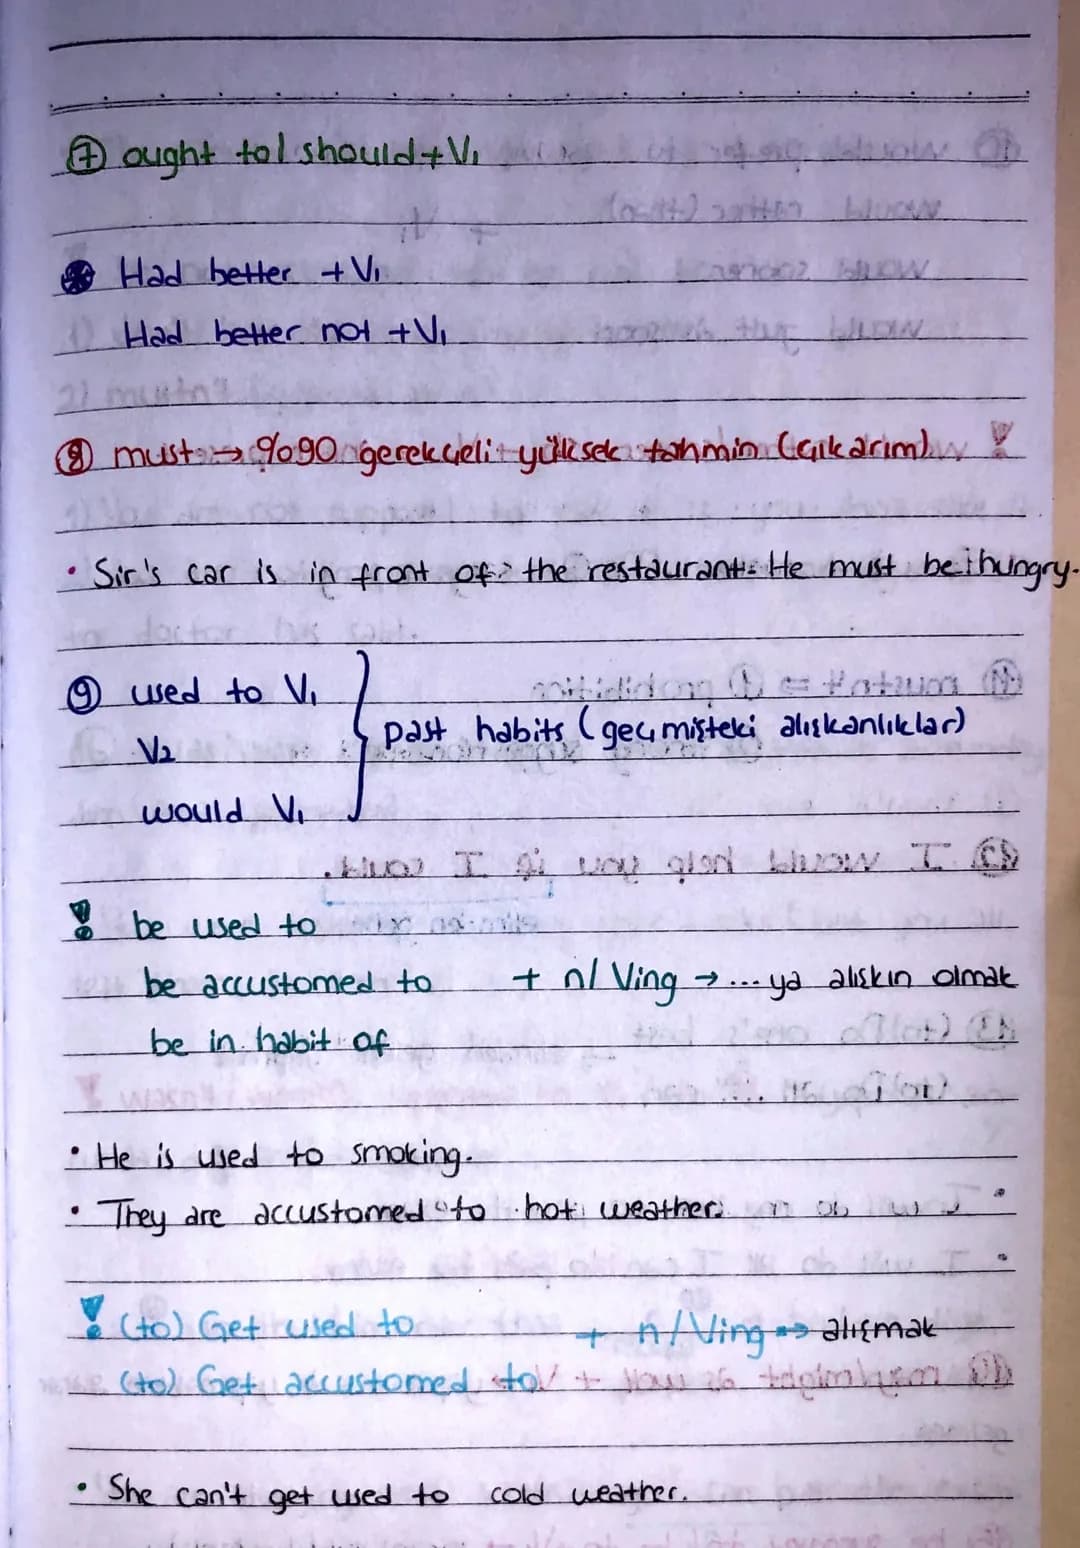 ⑦ ought to / should + V₁
Had better + V₁
Had better not + V₁
⑧ must → %90 gerekçeli yüksek tahmin (çıkarım)
• Sir's car is in front of the restaurant. He must be hungry.
⑨ used to V₁
V₂
past habits (geçmişteki alışkanlıklar)
would V₁
! be used to
be accustomed to + n/ Ving → ... ya alışkın olmak
be in habit of
• He is used to smoking.
• They are accustomed to hot weather.
! (to) Get used to + n/Ving → alışmak
(to) Get accustomed to
• She can't get used to cold weather.